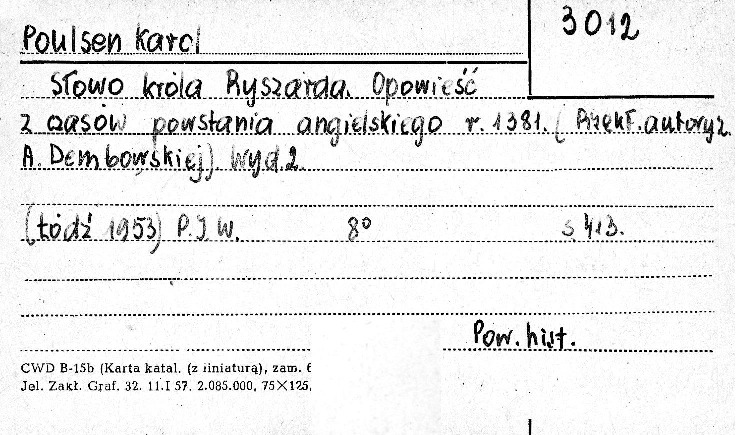 Poulsen Karol
3012
Słowo króla Ryszarda. Opowieść
z czasów powstania angielskiego r. 1381. (Przekł. autoryz.
A. Dembowskiej) Wyd. 2.
(Łódź 1953) P.I.W. 8° s 413.
Pow. hist.
CWD B-15b (Karta katal. (z liniaturą), zam. 6
Jel. Zakł. Graf. 32. 11.I 57. 2.085.000, 75×125,